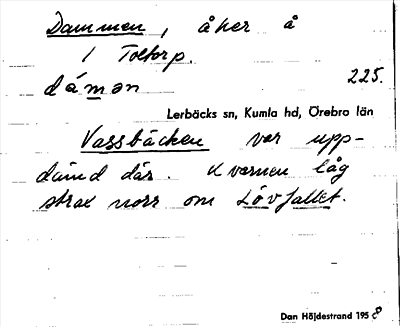 Dammen, åker å
1 Toltorp.
dámən 225.
Lerbäcks sn, Kumla hd, Örebro län
Vassbäcken var upp-
dämd där. Kvarnen låg
strax norr om Lövfallet.
Dan Höjdestrand 1958